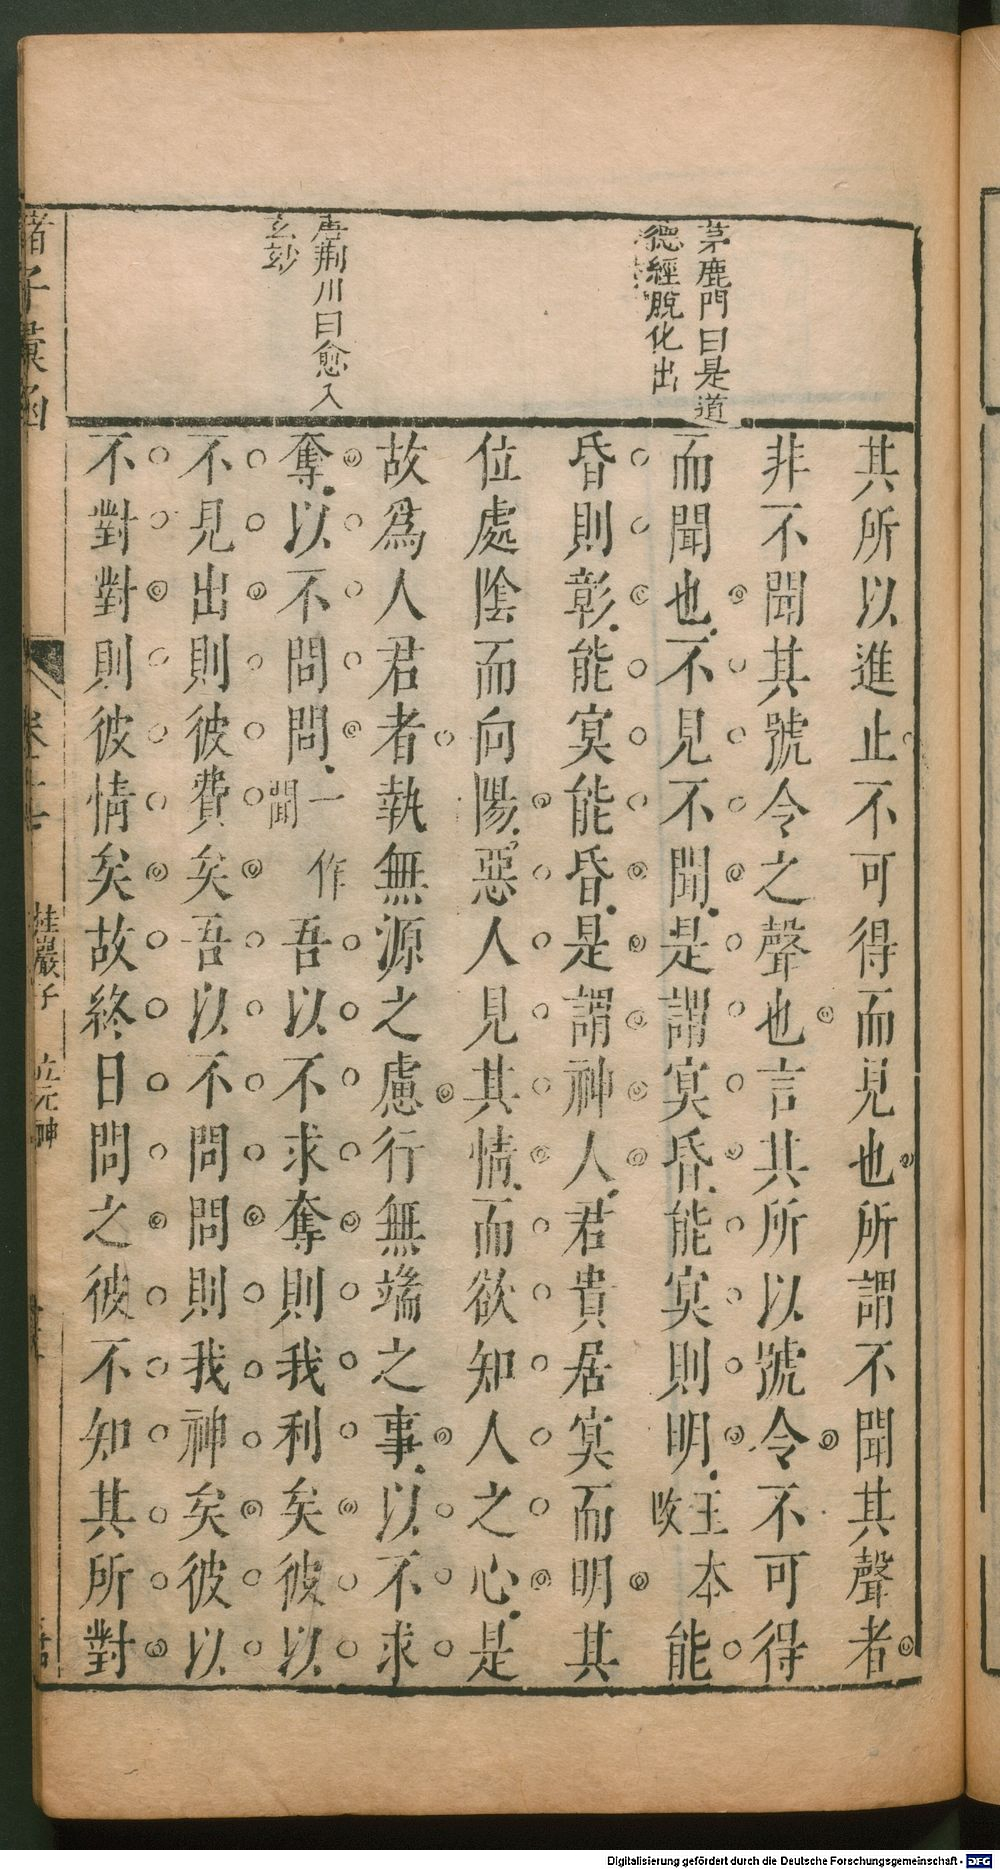 茅鹿門曰是道
德經脫化出
唐荆川曰愈入
玄玅
其所以進止不可得而見也所謂不聞其聲者
非不聞其號令之聲也言其所以號令不可得
而聞也不見不聞是謂冥昏能冥則明 主本改 能
昏則彰能冥能昏是謂神人君貴居冥而明其
位處陰而向陽惡人見其情而欲知人之心是
故爲人君者執無源之慮行無端之事以不求
奪以不問問 一作聞 吾以不求奪則我利矣彼以
不見出則彼費矣吾以不問問則我神矣彼以
不對對則彼情矣故終日問之彼不知其所對
諸子彙函
桂巖子 立元神
Digitalisierung gefördert durch die Deutsche Forschungsgemeinschaft - DFG